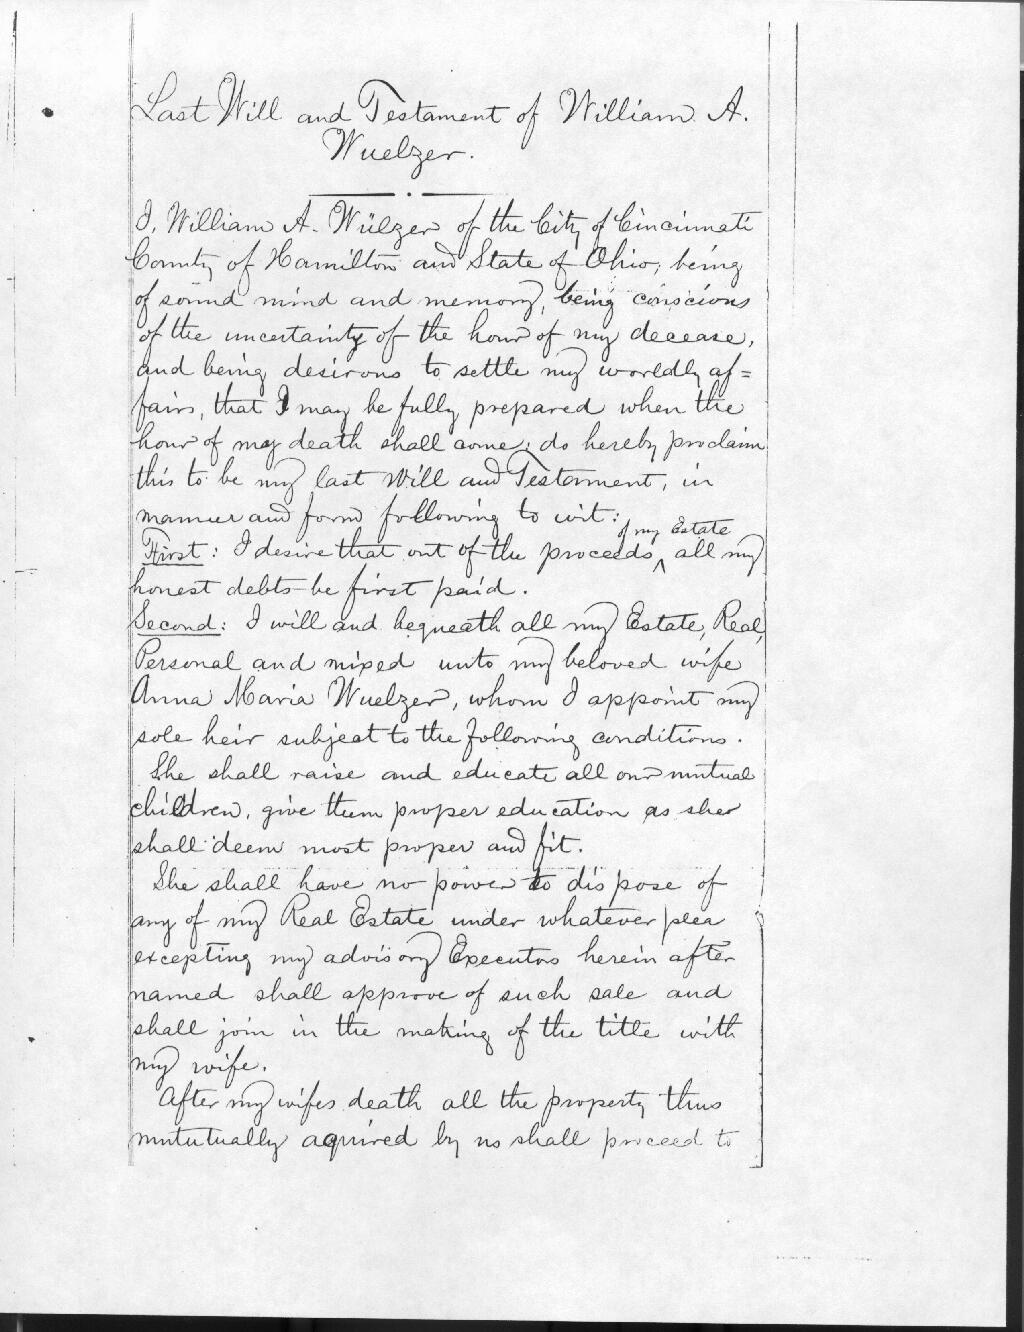 Last Will and Testament of William A.
Wuelzer.
I, William A. Wülzer of the City of Cincinnati
County of Hamilton and State of Ohio, being
of sound mind and memory, being conscious
of the uncertainty of the hour of my decease,
and being desirous to settle my worldly af=
fairs, that I may be fully prepared when the
hour of my death shall come; do hereby proclaim
this to be my last Will and Testament, in
manner and form following to wit:
of my Estate
First: I desire that out of the proceeds ^ all my
honest debts be first paid.
Second: I will and bequeath all my Estate, Real,
Personal and mixed unto my beloved wife
Anna Maria Wuelzer, whom I appoint my
sole heir subject to the following conditions.
She shall raise and educate all our mutual
children, give them proper education as she
shall deem most proper and fit.
She shall have no power to dispose of
any of my Real Estate under whatever plea
excepting my advisory Executors herein after
named shall approve of such sale and
shall join in the making of the title with
my wife.
After my wifes death all the property thus
mututually aquired by us shall proceed to